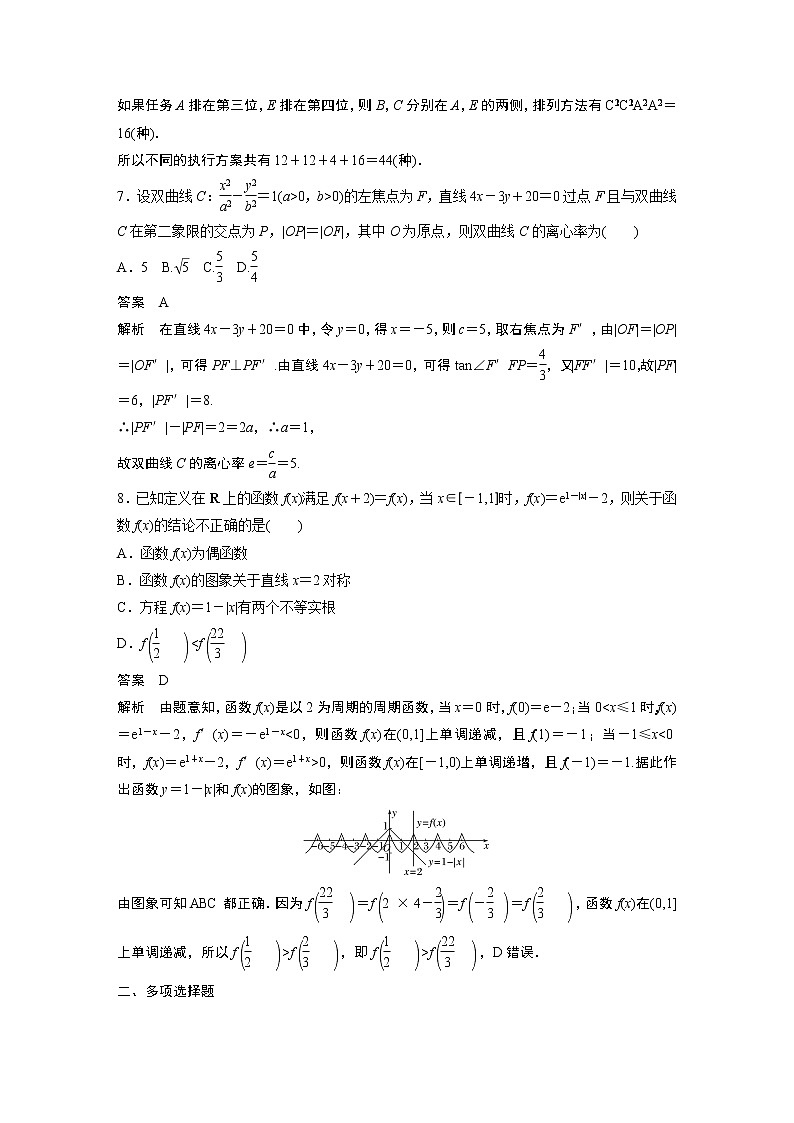 如果任务A排在第三位,E排在第四位,则B,C分别在A,E的两侧,排列方法有C¹₂C¹₂A²₂A²₂=
16(种).
所以不同的执行方案共有12+12+4+16=44(种).
7.设双曲线C:x²/a²-y²/b²=1(a>0,b>0)的左焦点为F,直线4x-3y+20=0过点F且与双曲线
C在第二象限的交点为P,|OP|=|OF|,其中O为原点,则双曲线C的离心率为(  )
A.5 B.√5 C.5/3 D.5/4
答案 A
解析 在直线4x-3y+20=0中,令y=0,得x=-5,则c=5,取右焦点为F′,由|OF|=|OP|
=|OF′|,可得PF⊥PF′.由直线4x-3y+20=0,可得tan∠F′FP=4/3,又|FF′|=10,故|PF|
=6,|PF′|=8.
∴|PF′|-|PF|=2=2a,∴a=1,
故双曲线C的离心率e=c/a=5.
8.已知定义在R上的函数f(x)满足f(x+2)=f(x),当x∈[-1,1]时,f(x)=e^(1-|x|)-2,则关于函
数f(x)的结论不正确的是(  )
A.函数f(x)为偶函数
B.函数f(x)的图象关于直线x=2对称
C.方程f(x)=1-|x|有两个不等实根
D.f(1/2)<f(22/3)
答案 D
解析 由题意知,函数f(x)是以2为周期的周期函数,当x=0时,f(0)=e-2;当0<x≤1时,f(x)
=e^(1-x)-2,f′(x)=-e^(1-x)<0,则函数f(x)在(0,1]上单调递减,且f(1)=-1;当-1≤x<0
时,f(x)=e^(1+x)-2,f′(x)=e^(1+x)>0,则函数f(x)在[-1,0)上单调递增,且f(-1)=-1.据此作
出函数y=1-|x|和f(x)的图象,如图:
y
1 y=f(x)
-6-5-4-3-2-1O 1 2 3 4 5 6 x
-1 y=1-|x|
x=2
由图象可知ABC 都正确.因为f(22/3)=f(2×4-2/3)=f(-2/3)=f(2/3),函数f(x)在(0,1]
上单调递减,所以f(1/2)>f(2/3),即f(1/2)>f(22/3),D错误.
二、多项选择题